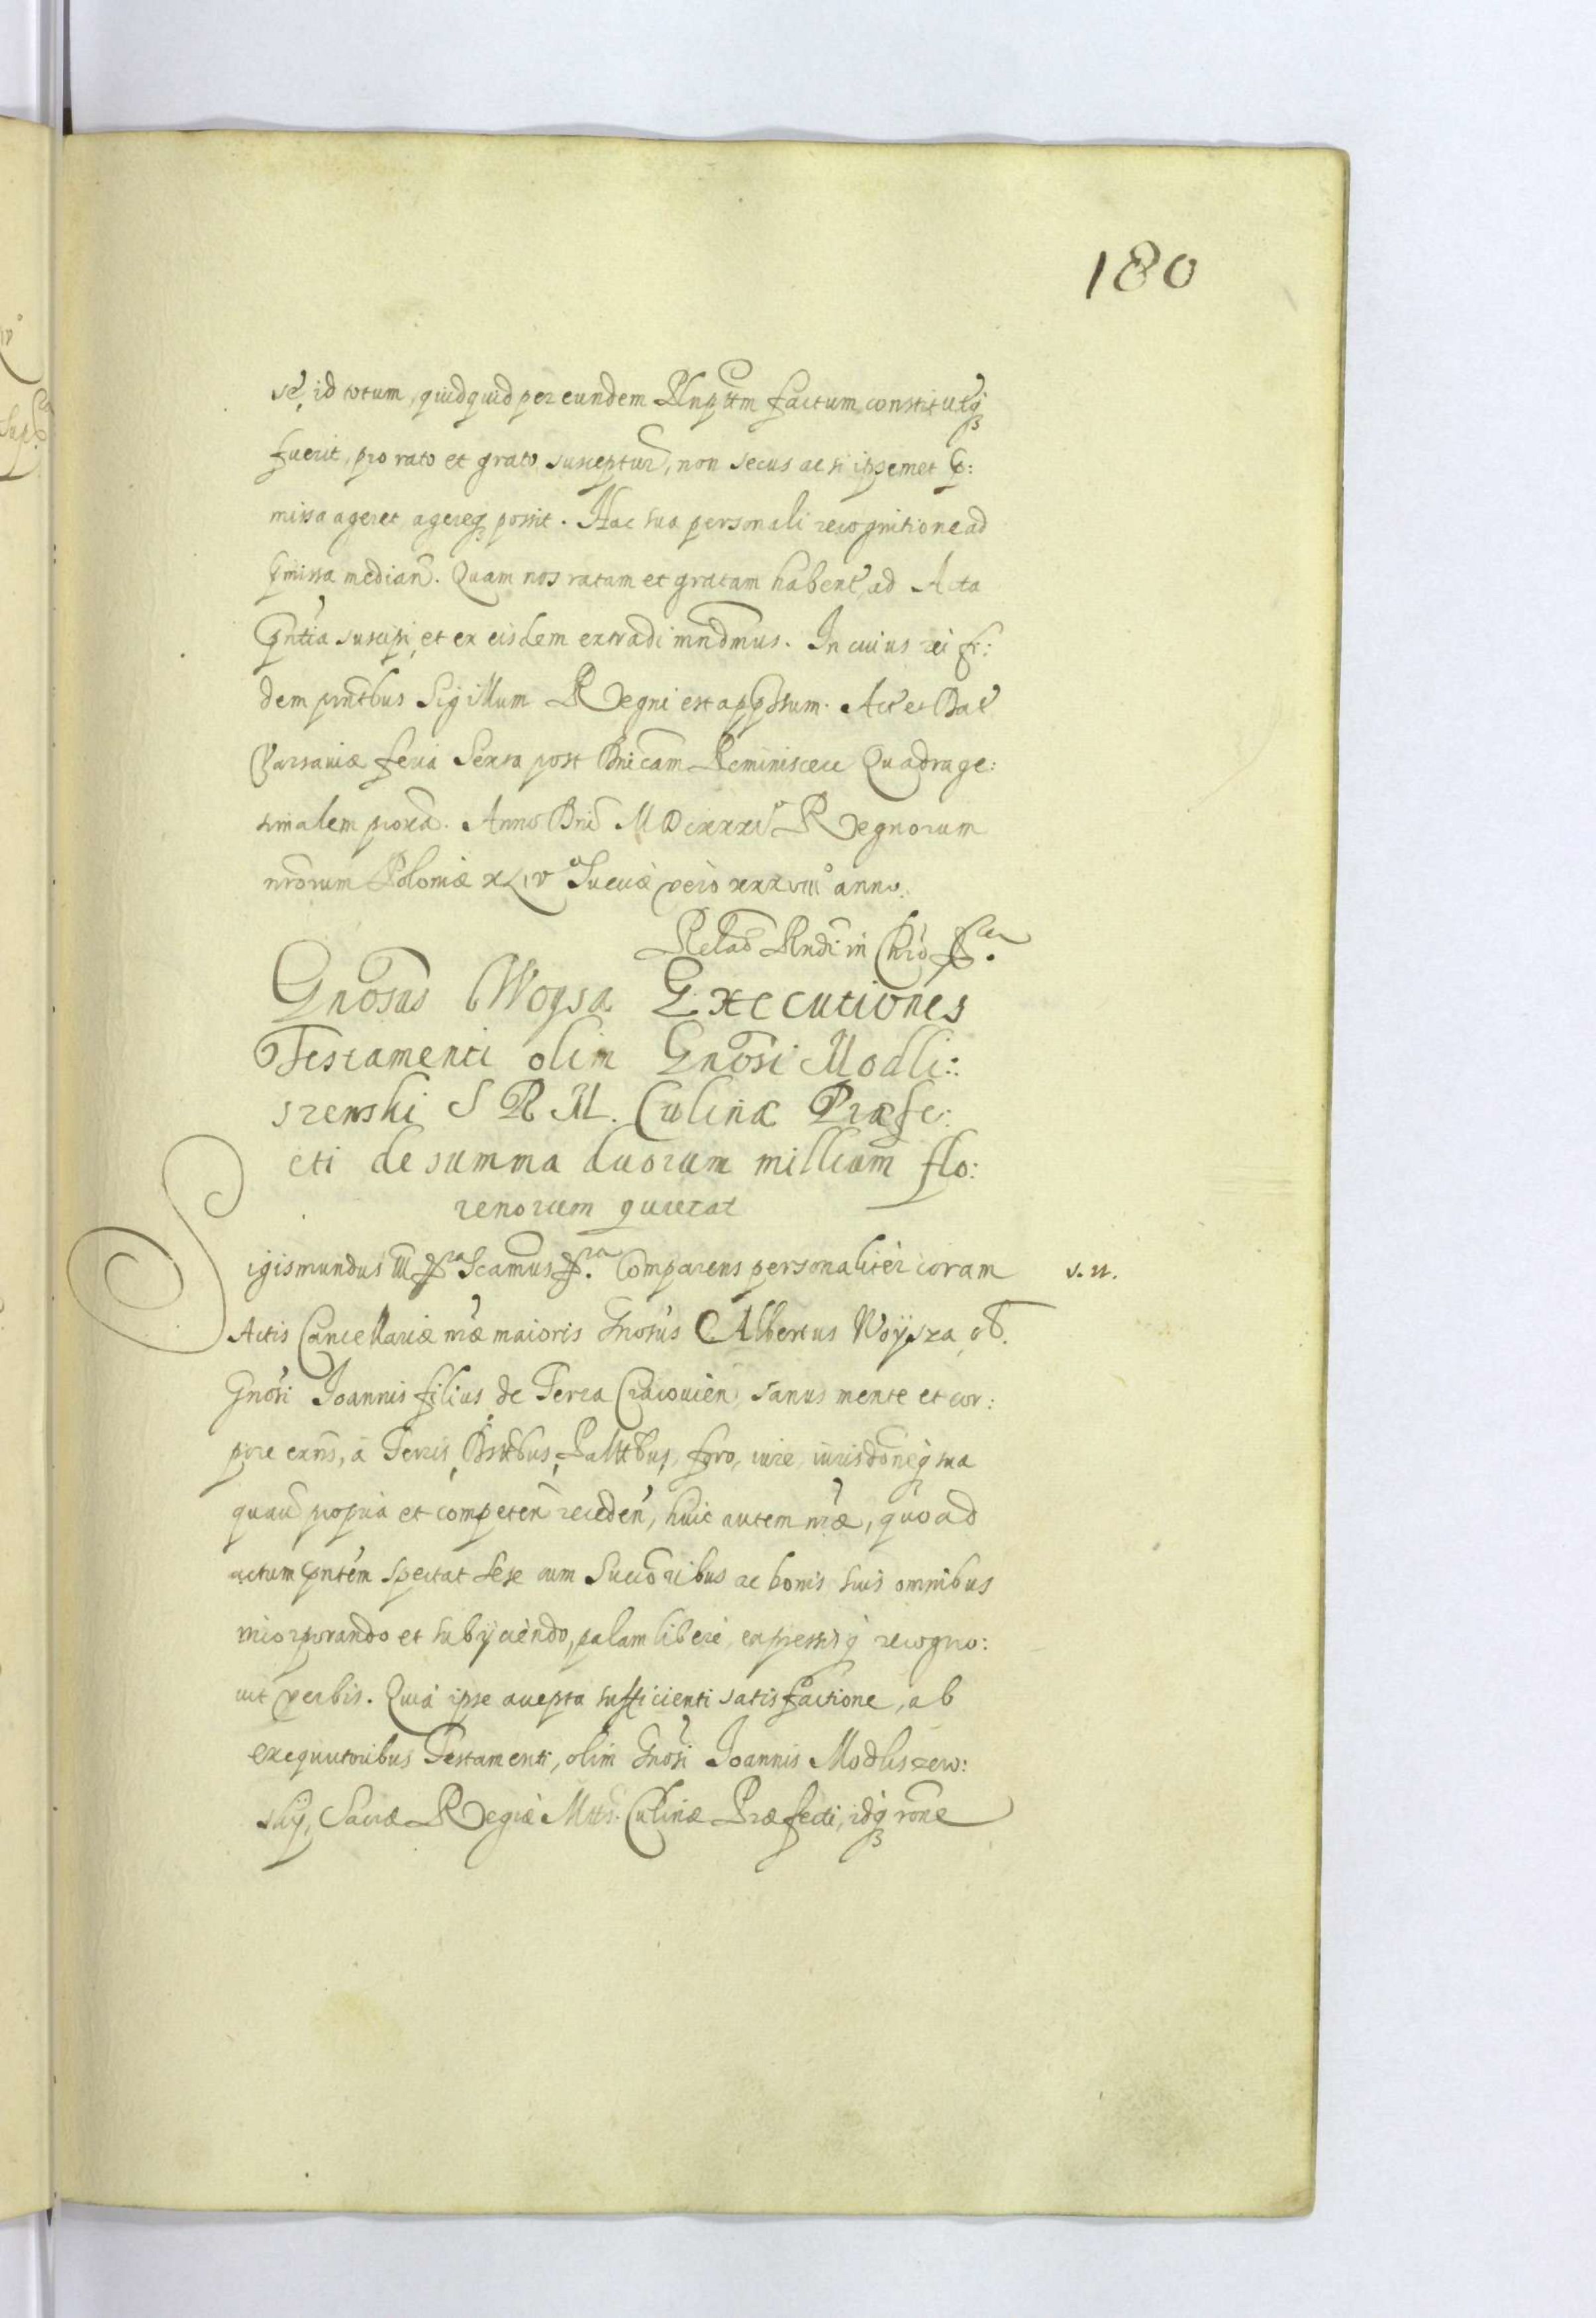 180
se, id totum, quidquid per eundem Plnptm factum constitutq
fuerit, pro rato et grato suscepturũ, non secus ac si ipsemet p:
missa ageret agereq posset. Hac sua personali recognitione ad
pmissa median. Quam nos ratam et gratam haben ad Acta
pntia suscipi, et ex eisdem extradi mndmus. In cuius rei fi:
dem pntbus Sigillum Regni est appssum. Act et Dat
Varsaviæ feria Sexta post Dnicam Reminiscere Quadrage:
simalem proxã. Anno Dni MDCXXXI Regnorum
nrorum Poloniæ XLIV Sueciæ vero XXXVIII anno.
Relaõ Rndi in Chro &c.
Gnosus Woysa Executiones
Testamenti olim Gnosi Modli:
szewski S R M. Culinæ Præfe:
cti de summa duorum millium flo:
renorum quietat
Sigismundus III &ra Scamus &ra. Comparens personaliter coram
s. n.
Actis Cancellariæ nræ maioris Gnosus Albertus Woysza, ol.
Gnosi Joannis filius de Terra Cracovien, sanus mente et cor:
pore exns, a Terris, Dsttbus, Palttbus, foro, iure, iurisdoneq sua
quavis propria et competen receden, huic autem nræ, quo ad
actum pntem spectat sese cum Succoribus ac bonis suis omnibus
incorporando et subyciendo, palam libere, expressisq recogno:
vit verbis. Quia ipse accepta sufficienti satisfactione, ab
exequutoribus Testamenti, olim Gnosi Joannis Modliszew:
skij, Sacræ Regiæ Mttis. Culinæ Præfecti, idq rone